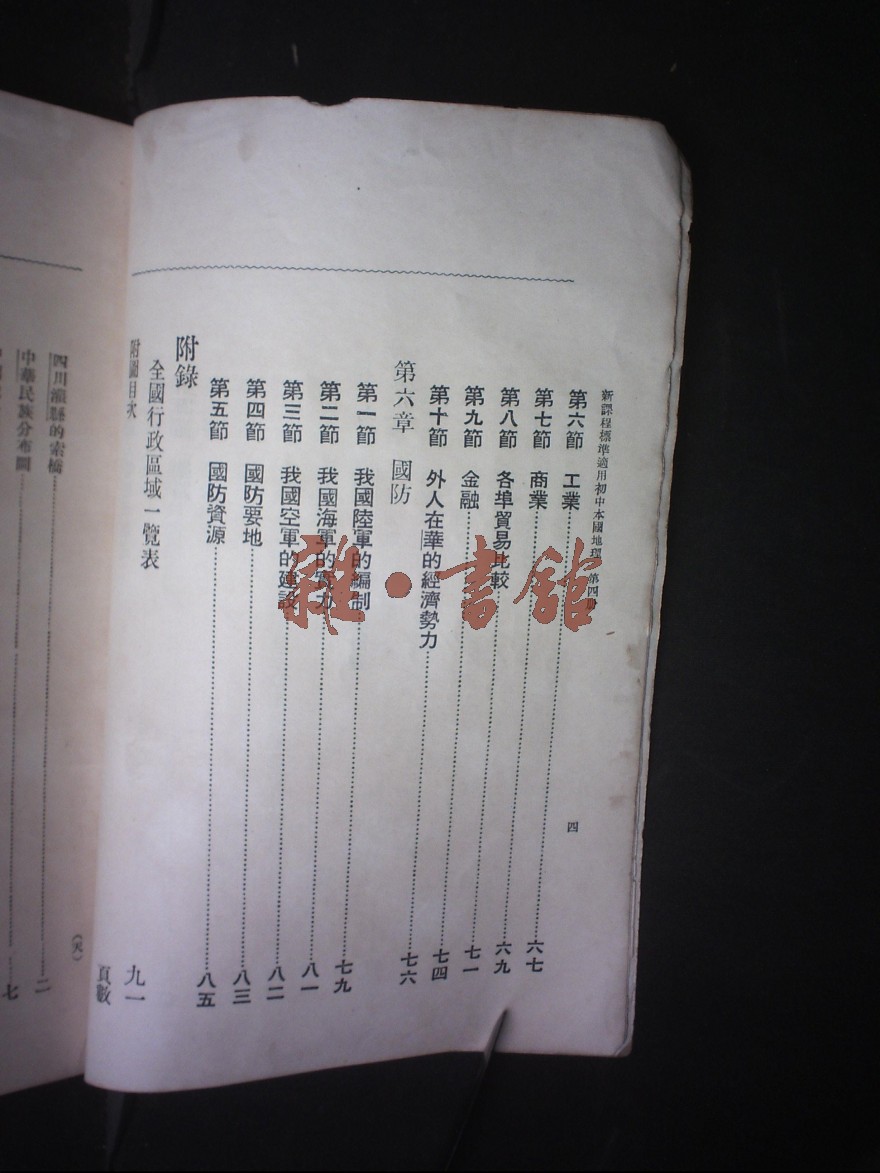 新課程標準適用初中本國地理 第四冊
四
第六節 工業 六七
第七節 商業 六九
第八節 各埠貿易比較 七一
第九節 金融 七四
第十節 外人在華的經濟勢力 七六
第六章 國防
第一節 我國陸軍的編制 七九
第二節 我國海軍的實力 八一
第三節 我國空軍的建設 八二
第四節 國防要地 八三
第五節 國防資源 八五
附錄
全國行政區域一覽表 九一
附圖目次 頁數
四川灌縣的索橋 二
中華民族分布圖 七
雜·書館